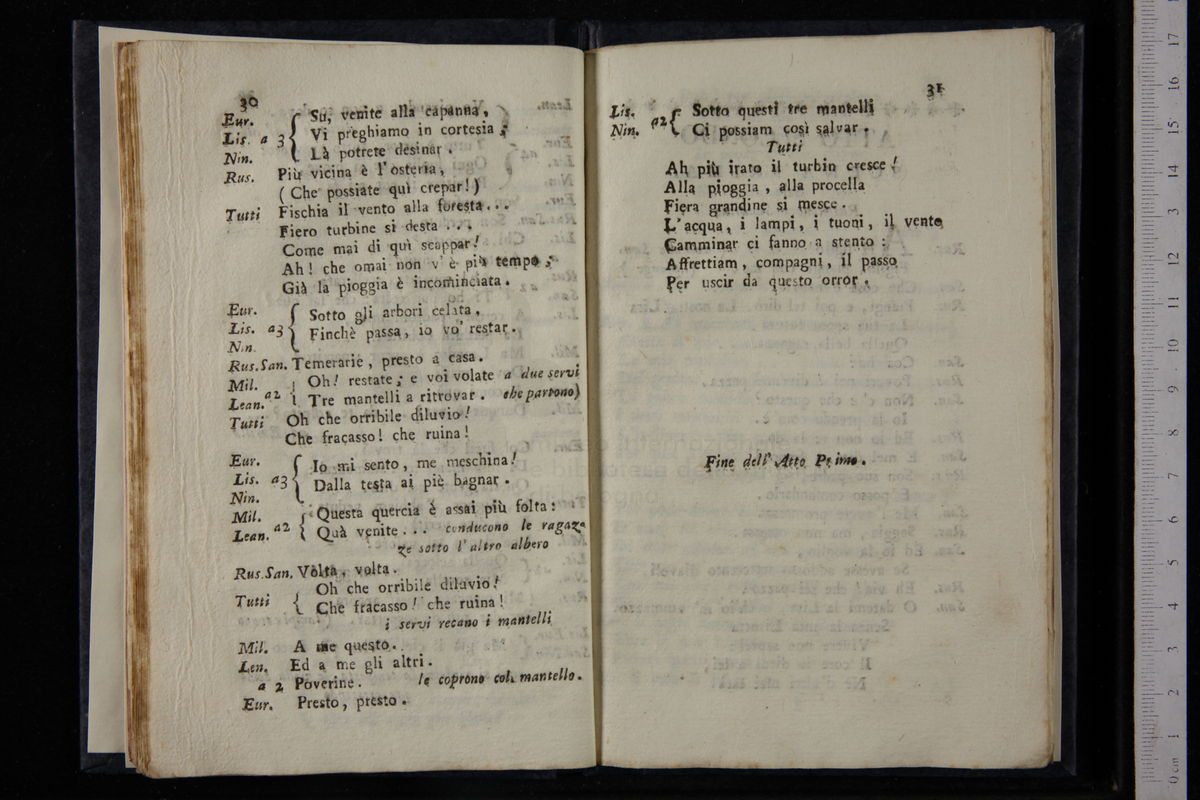 30
Eur. Su, venite alla capanna,
Lis. a 3 { Vi preghiamo in cortesia;
Nin. Là potrete desinar.
Rus. Più vicina è l'osteria,
(Che possiate quì crepar!)
Tutti Fischia il vento alla foresta...
Fiero turbine si desta...
Come mai di quì scappar!
Ah! che omai non v'è più tempo;
Già la pioggia è incominciata.
Eur. Sotto gli arbori celata,
Lis. a3 { Finchè passa, io vo' restar.
Nin.
Rus. San. Temerarie, presto a casa.
Mil. Oh! restate; e voi volate a due servi
Lean. a2 { Tre mantelli a ritrovar. che partono)
Tutti Oh che orribile diluvio!
Che fracasso! che ruina!
Eur. Io mi sento, me meschina!
Lis. a3 { Dalla testa ai piè bagnar.
Nin.
Mil. Questa quercia è assai più folta:
Lean. a2 { Quà venite... conducono le ragaz-
ze sotto l'altro albero
Rus. San. Volta, volta.
Oh che orribile diluvio!
Tutti { Che fracasso! che ruina!
i servi recano i mantelli
Mil. A me questo..
Len. Ed a me gli altri.
a 2 Poverine. le coprono col mantello.
Eur. Presto, presto.
31
Lis. Sotto questi tre mantelli
Nin. a2 { Ci possiam così salvar.
Tutti
Ah più irato il turbin cresce!
Alla pioggia, alla procella
Fiera grandine si mesce.
L'acqua, i lampi, i tuoni, il vento
Camminar ci fanno a stento:
Affrettiam, compagni, il passo
Per uscir da questo orror.
Fine dell'Atto Primo.